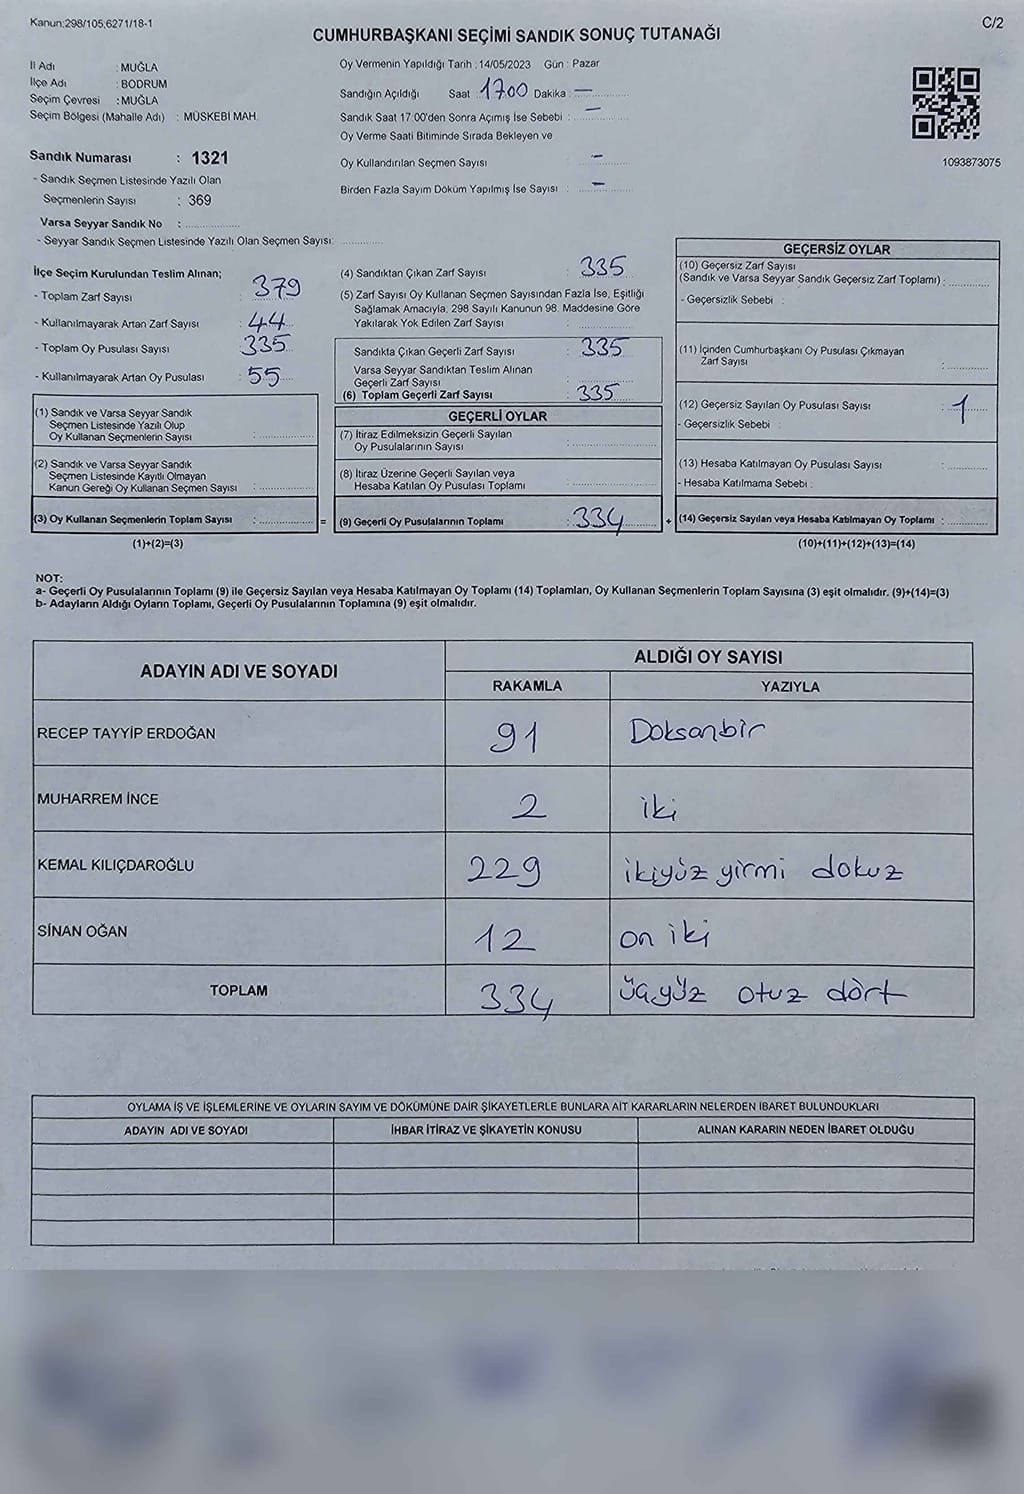 Kanun:298/105;6271/18-1
C/2
CUMHURBAŞKANI SEÇİMİ SANDIK SONUÇ TUTANAĞI
İl Adı : MUĞLA
İlçe Adı : BODRUM
Seçim Çevresi : MUĞLA
Seçim Bölgesi (Mahalle Adı) : MÜSKEBİ MAH.
Sandık Numarası : 1321
- Sandık Seçmen Listesinde Yazılı Olan
Seçmenlerin Sayısı : 369
Varsa Seyyar Sandık No :
- Seyyar Sandık Seçmen Listesinde Yazılı Olan Seçmen Sayısı:
Oy Vermenin Yapıldığı Tarih : 14/05/2023 Gün : Pazar
Sandığın Açıldığı Saat : 17.00 Dakika : —
Sandık Saat 17:00'den Sonra Açımış İse Sebebi : —
Oy Verme Saati Bitiminde Sırada Bekleyen ve
Oy Kullandırılan Seçmen Sayısı : —
Birden Fazla Sayım Döküm Yapılmış İse Sayısı : —
1093873075
İlçe Seçim Kurulundan Teslim Alınan;
- Toplam Zarf Sayısı : 379
- Kullanılmayarak Artan Zarf Sayısı : 44
- Toplam Oy Pusulası Sayısı : 335
- Kullanılmayarak Artan Oy Pusulası : 55
(1) Sandık ve Varsa Seyyar Sandık
Seçmen Listesinde Yazılı Olup
Oy Kullanan Seçmenlerin Sayısı :
(2) Sandık ve Varsa Seyyar Sandık
Seçmen Listesinde Kayıtlı Olmayan
Kanun Gereği Oy Kullanan Seçmen Sayısı :
(3) Oy Kullanan Seçmenlerin Toplam Sayısı :
(1)+(2)=(3)
=
(4) Sandıktan Çıkan Zarf Sayısı : 335
(5) Zarf Sayısı Oy Kullanan Seçmen Sayısından Fazla İse, Eşitliği
Sağlamak Amacıyla, 298 Sayılı Kanunun 98. Maddesine Göre
Yakılarak Yok Edilen Zarf Sayısı :
Sandıkta Çıkan Geçerli Zarf Sayısı : 335
Varsa Seyyar Sandıktan Teslim Alınan
Geçerli Zarf Sayısı :
(6) Toplam Geçerli Zarf Sayısı : 335
GEÇERLİ OYLAR
(7) İtiraz Edilmeksizin Geçerli Sayılan
Oy Pusulalarının Sayısı :
(8) İtiraz Üzerine Geçerli Sayılan veya
Hesaba Katılan Oy Pusulası Toplamı :
(9) Geçerli Oy Pusulalarının Toplamı : 334
+
GEÇERSİZ OYLAR
(10) Geçersiz Zarf Sayısı
(Sandık ve Varsa Seyyar Sandık Geçersiz Zarf Toplamı) :
- Geçersizlik Sebebi :
(11) İçinden Cumhurbaşkanı Oy Pusulası Çıkmayan
Zarf Sayısı :
(12) Geçersiz Sayılan Oy Pusulası Sayısı : 1
- Geçersizlik Sebebi :
(13) Hesaba Katılmayan Oy Pusulası Sayısı :
- Hesaba Katılmama Sebebi :
(14) Geçersiz Sayılan veya Hesaba Katılmayan Oy Toplamı :
(10)+(11)+(12)+(13)=(14)
NOT:
a- Geçerli Oy Pusulalarının Toplamı (9) ile Geçersiz Sayılan veya Hesaba Katılmayan Oy Toplamı (14) Toplamları, Oy Kullanan Seçmenlerin Toplam Sayısına (3) eşit olmalıdır. (9)+(14)=(3)
b- Adayların Aldığı Oyların Toplamı, Geçerli Oy Pusulalarının Toplamına (9) eşit olmalıdır.
ADAYIN ADI VE SOYADI
ALDIĞI OY SAYISI
RAKAMLA YAZIYLA
RECEP TAYYİP ERDOĞAN 91 Doksanbir
MUHARREM İNCE 2 iki
KEMAL KILIÇDAROĞLU 229 ikiyüz yirmi dokuz
SİNAN OĞAN 12 on iki
TOPLAM 334 üçyüz otuz dört
OYLAMA İŞ VE İŞLEMLERİNE VE OYLARIN SAYIM VE DÖKÜMÜNE DAİR ŞİKAYETLERLE BUNLARA AİT KARARLARIN NELERDEN İBARET BULUNDUKLARI
ADAYIN ADI VE SOYADI İHBAR İTİRAZ VE ŞİKAYETİN KONUSU ALINAN KARARIN NEDEN İBARET OLDUĞU